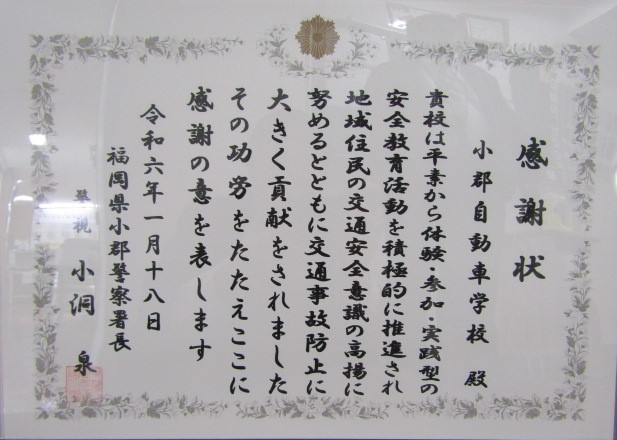 感謝状
小郡自動車学校 殿
貴校は平素から体験・参加・実践型の
安全教育活動を積極的に推進され
地域住民の交通安全意識の高揚に
努めるとともに交通事故防止に
大きく貢献をされました
その功労をたたえここに
感謝の意を表します
令和六年一月十八日
福岡県小郡警察署長
警視 小洞 泉